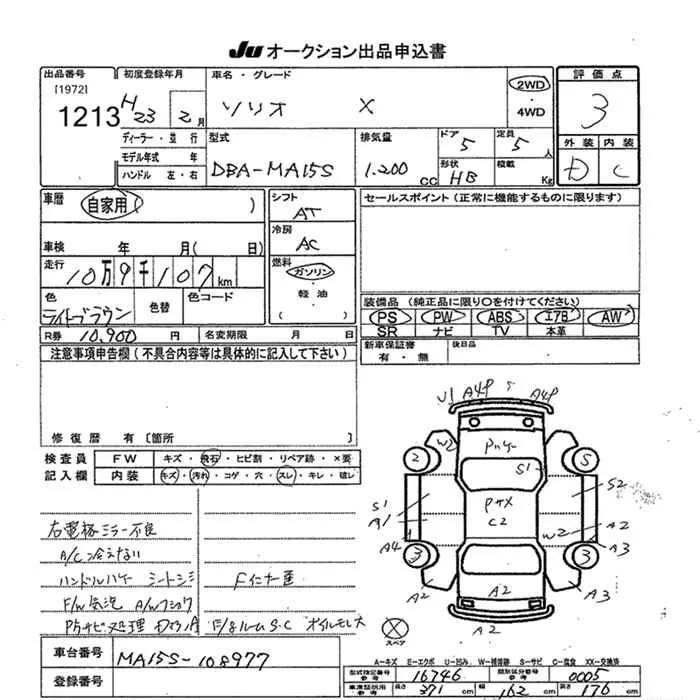 JU オークション出品申込書
出品番号
[1972]
1213
初度登録年月
H23 2月
車名・グレード
ソリオ X
2WD
・
4WD
評価点
3
外装 内装
D C
ディーラー・並行
モデル年式 年
ハンドル 左・右
型式
DBA-MA15S
排気量
1.200 CC
ドア
5
定員
5人
形状
HB
積載
Kg
車歴 自家用( )
車検 年 月( 日)
走行 10万9千107km
色
ライトブラウン
色替
色コード
R券 10,900 円
名変期限 月 日
シフト
AT
冷房
AC
燃料
ガソリン
・
軽油
( )
セールスポイント(正常に機能するものに限ります)
装備品(純正品に限り○を付けてください)
PS PW ABS エアB AW
SR ナビ TV 本革
新車保証書
有・無
後日品
注意事項申告欄(不具合内容等は具体的に記入して下さい)
修復歴 有〔箇所 〕
検査員 FW キズ・飛石・ヒビ割・リペア跡・×要
記入欄 内装 キズ・汚れ・コゲ・穴・スレ・キレ・破レ
右電格ミラー不良
A/C冷えない
ハンドルハゲ シートシミ
F/W気泡
内サビ処理
オイルモレ大
U1 A4P A4P
W2
2 5
S1
S2
S1 A1 C2 W2 A2
A4 3 3 A3
A2 A2 A3
A2
スペア
A-キズ E-エクボ U-凹み W-補修跡 S-サビ C-腐食 XX-交換済
車台番号 MA15S-108977
登録番号
型式指定番号 参考 16746
類別区分番号 参考 0005
車検証採用 参考 長さ 371 cm 幅 162 cm 高さ 176 cm